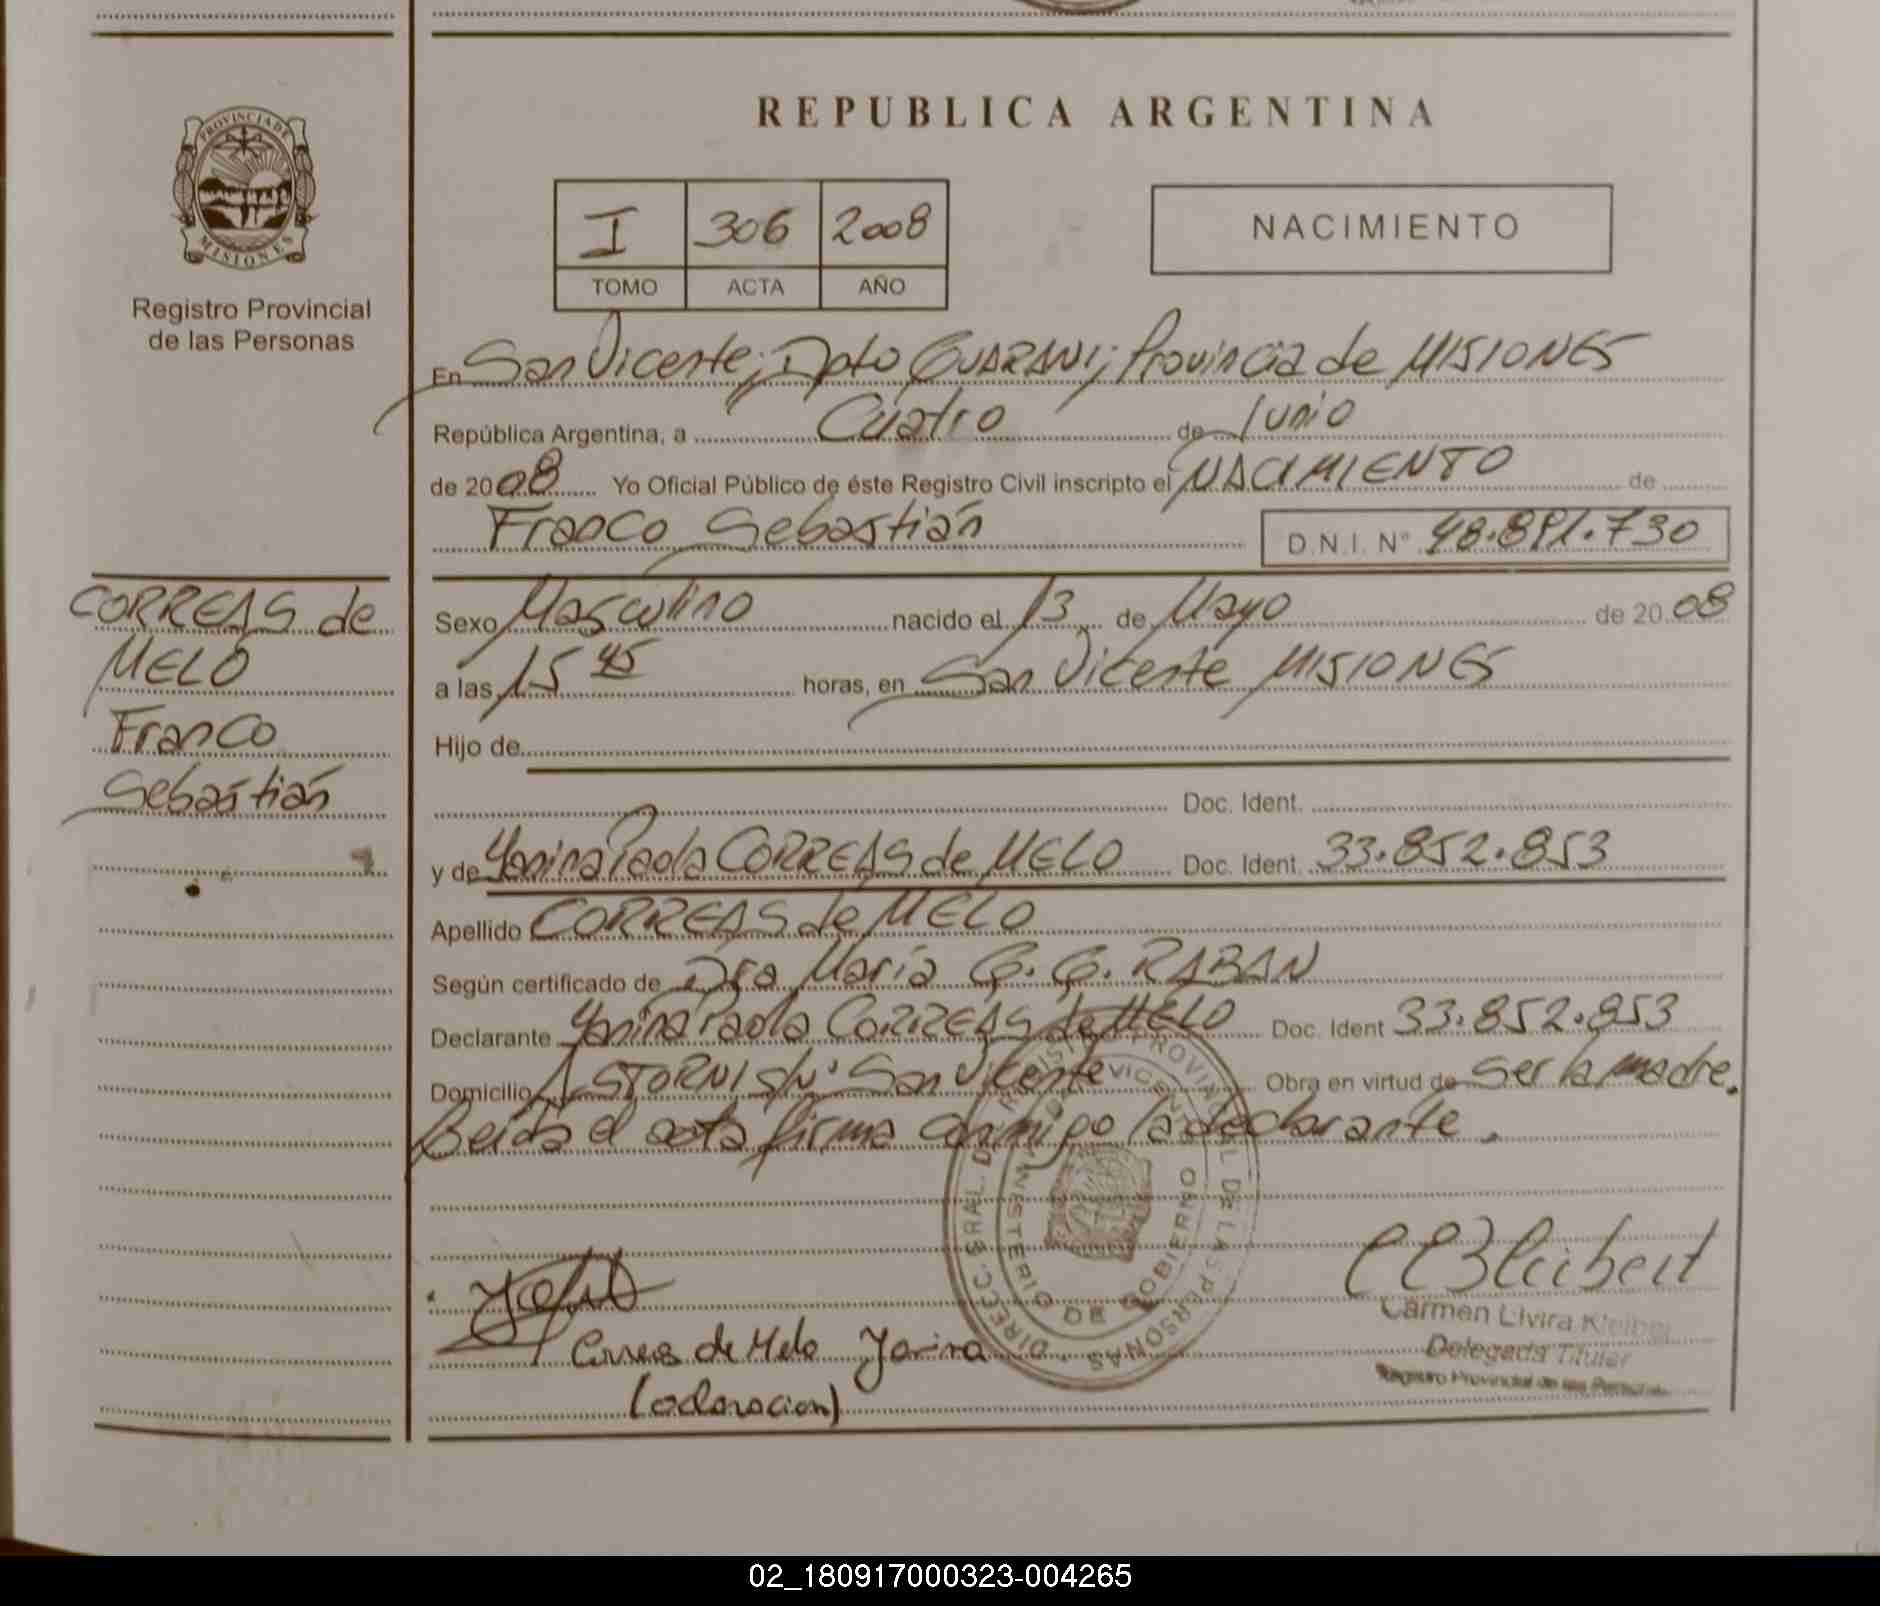 PROVINCIA DE
MISIONES
Registro Provincial
de las Personas
CORREAS de
MELO
Franco
Sebastián
REPUBLICA ARGENTINA
I 306 2008
TOMO ACTA AÑO
NACIMIENTO
En San Vicente; Dpto GUARANI; Provincia de MISIONES
República Argentina, a Cuatro de Junio
de 2008 Yo Oficial Público de éste Registro Civil inscripto el NACIMIENTO de
Franco Sebastián D.N.I. Nº 48.891.730
Sexo Masculino nacido el 13 de Mayo de 2008
a las 15 45 horas, en San Vicente MISIONES
Hijo de
Doc. Ident.
y de Yanina Paola CORREAS de MELO Doc. Ident. 33.852.853
Apellido CORREAS de MELO
Según certificado de Dra María G. G. RABAN
Declarante Yanina Paola CORREAS de MELO Doc. Ident 33.852.853
Domicilio A STORNI s/Nº San Vicente Obra en virtud de ser la madre.
Leída el acta firma conmigo la declarante.
DIREC. GRAL. DE REGISTRO PROVINCIAL DE LAS PERSONAS
SAN VICENTE
MINISTERIO DE GOBIERNO
Correas de Melo Yanina
(aclaracion)
Carmen Elvira Kleiber
Delegada Titular
Registro Provincial de las Personas
02_180917000323-004265